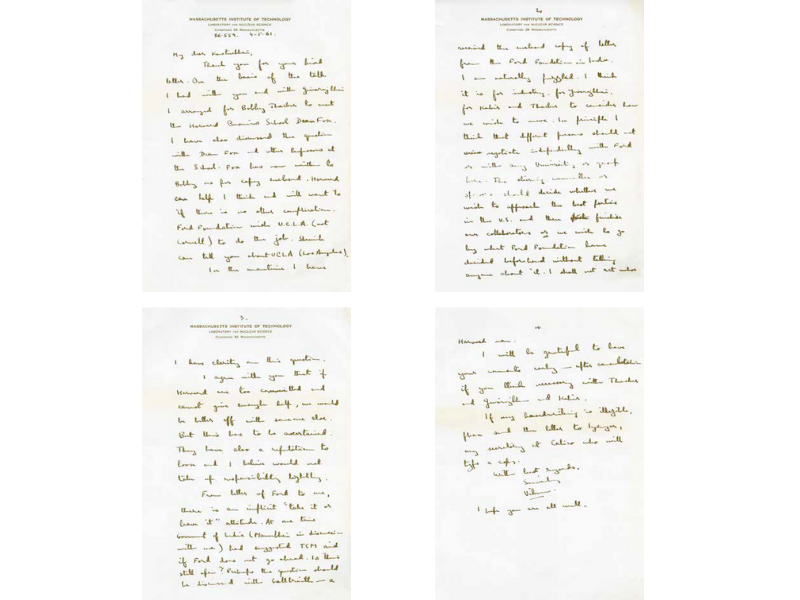 MASSACHUSETTS INSTITUTE OF TECHNOLOGY
LABORATORY FOR NUCLEAR SCIENCE
CAMBRIDGE 39 MASSACHUSETTS
My dear Kasturbhai,
Thank you for your kind
letter. On the basis of the talk
I had with you and with
I arranged for Bobby Thacher to meet
the Harvard Business School Dean Fox.
I have also discussed the question
with Dean Fox and other Professors at
the School. Fox has now written to
Bobby as per copy enclosed. Harvard
can help I think and will want to
if there is no other complication.
Ford Foundation wish U.C.L.A. (not
Cornell) to do the job.
can tell you about UCLA (Los Angeles).
In the meantime I have
2
MASSACHUSETTS INSTITUTE OF TECHNOLOGY
LABORATORY FOR NUCLEAR SCIENCE
CAMBRIDGE 39 MASSACHUSETTS
received the enclosed copy of letter
from the Ford Foundation in India.
I am naturally puzzled. I think
it is for industry, for
for Kabir and Thacher to consider how
we wish to move. In principle I
think that different persons should not
negotiate independently with Ford
or with any University or group
here. The steering committee or
should decide whether we
wish to approach the best parties
in the U.S. and then finalise
our collaborators or we wish to go
by what Ford Foundation have
decided beforehand without telling
anyone about it. I shall not act unless
3.
MASSACHUSETTS INSTITUTE OF TECHNOLOGY
LABORATORY FOR NUCLEAR SCIENCE
CAMBRIDGE 39 MASSACHUSETTS
I have clarity on this question.
I agree with you that if
Harvard are too committed and
cannot give enough help, we would
be better off with someone else.
But this has to be ascertained.
They have also a reputation to
loose and I believe would not
take up responsibility lightly.
From letter of Ford to me,
there is an implicit "take it or
leave it" attitude. At one time
Government of India (Manubhai in discussion
with me) had suggested TCM aid
if Ford does not go ahead. Is this
still open? Perhaps the question should
be discussed with Galbraith — a
4
Harvard man.
I will be grateful to have
your comments early — after consultation
if you think necessary with Thacher
and and Kabir.
If my handwriting is illegible,
please send the letter to Iyengar,
my secretary at Calico who will
type a copy.
With best regards,
Sincerely
Vikram
I hope you are all well.